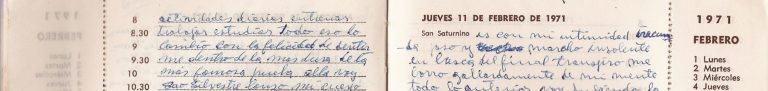 1971
FEBRERO
8 actividades diarias entrenar
8.30 trabajar estudiar todo eso lo
9 cambio con la felicidad de sentir
9.30 me dentro de la mas dura de la
10 mas famosa prueba ella voy
10.30 San Silvestre lanzo mi cuerpo
JUEVES 11 DE FEBRERO DE 1971
San Saturnino es con mi intimidad
- La piso y marcho insolente
en busca del final transpiro me
corro gallardamente de mi mente
todo lo anterior voy
1971
FEBRERO
1 Lunes
2 Martes
3 Miércoles
4 Jueves